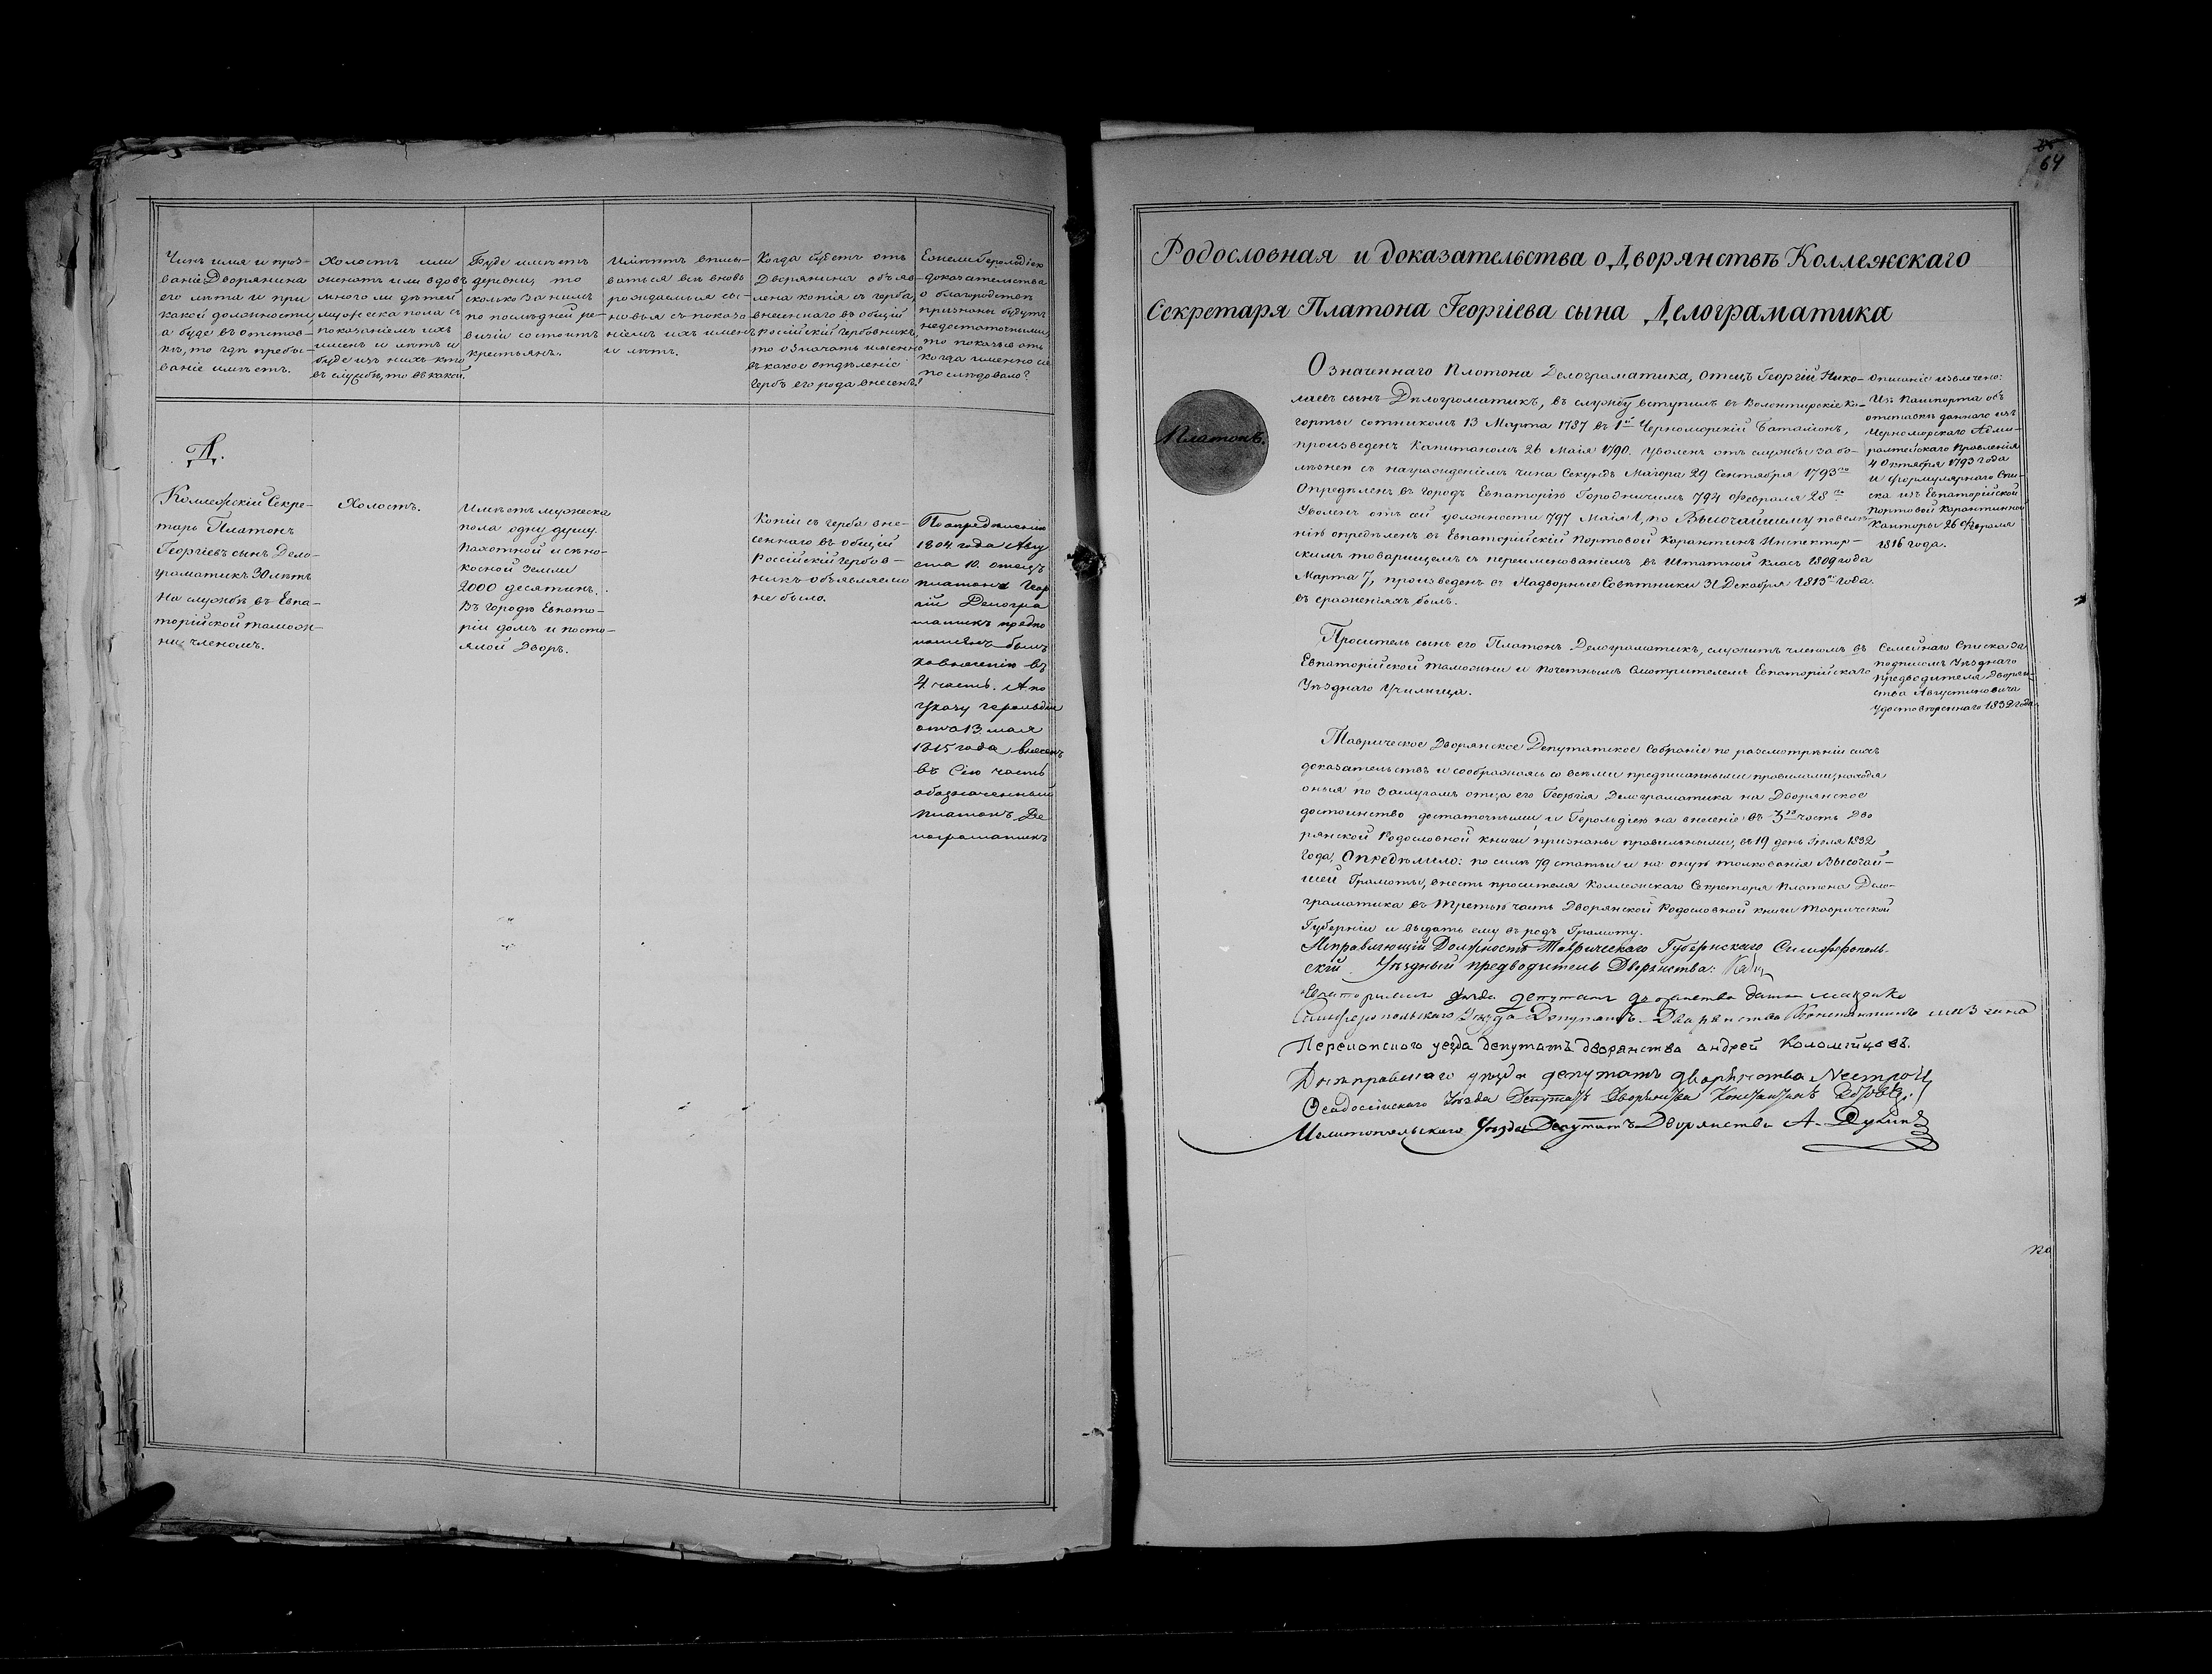 Чинъ имя и проз-
ваніе Дворянина
его лѣта и при
какой должности,
а буде въ отстав-
кѣ, то гдѣ пребы-
ваніе имѣетъ.
Холостъ или
женатъ или вдовъ
много ли дѣтей
мужеска пола съ
показаніемъ ихъ
именъ и лѣтъ и
буде изъ нихъ кто
въ службѣ, то въ какой.
Буде имѣетъ
деревни, то
сколько за нимъ
по послѣдней ре-
визіи состоитъ
крестьянъ.
Имѣютъ впи-
ваться всѣ вновь
рождаемыя сы-
новья съ показа-
ніемъ ихъ именъ
и лѣтъ.
Когда будетъ отъ
Дворянина объяв-
лена копія съ герба,
внесеннаго въ общій
Россійскій Гербовникъ,
то означать именно
въ какое отдѣленіе
гербъ его рода внесенъ?
Есьли Герольдіею
доказательства
о благородствѣ
признаны будутъ
недостаточными,
то показывать
когда именно сіе
послѣдовало?
Д.
Коллежскій Секре-
тарь Платонъ
Георгіевъ сынъ Дело-
граматикъ 30 лѣтъ
На службѣ въ Евпа-
торійской тамож-
нѣ членомъ.
Холостъ.
Имѣетъ мужеска
пола одну душу.
Пахотной и сѣно-
косной земли
2000 десятинъ.
Въ городѣ Евпато-
ріи домъ и посто-
ялой дворъ.
Копіи съ герба вне-
сеннаго въ общій
Россійскій Гербов-
никъ объявляемо
не было.
По опредѣленію
1804 года Авгу
ста 10. отецъ
Платона Геор
гій Делогра
матикъ предпо
ложенъ былъ
ко внесенію въ
4 часть. А по
указу герольдіи
отъ 13 мая
1815 года внесенъ
въ Сію часть
обозначенный
Платонъ Де
лограматикъ
64
Родословная и доказательства о Дворянствѣ Коллежскаго
Секретаря Платона Георгіева сына Делограматика
Платонъ.
Означеннаго Платона Делограматика, отецъ Георгій Нико-
лаевъ сынъ Делограматикъ, въ службу вступилъ въ Волонтирскіе Ко-
горты сотникомъ 13 Марта 1787 въ 1й Черноморскій Баталіонъ,
произведенъ Капитаномъ 26 Маія 1790. Уволенъ отъ службы за бо-
лѣзнею съ награжденіемъ чина Секундъ Маіора 29 Сентября 1793го
Опредѣленъ въ городъ Евпаторію Городничимъ 794 Февраля 28го
Уволенъ отъ сей должности 797 Маія 1, по Высочайшему повелѣ-
нію опредѣленъ въ Евпаторійскій Портовой Карантинъ Инспектор-
скимъ товарищемъ съ переименованіемъ въ Штатной Класъ 1809 года
Марта 7, произведенъ въ Надворные Совѣтники 31 Декабря 1813го года.
въ сраженіяхъ былъ.
Описаніе извлечено:
Изъ Пашпорта объ
отставкѣ даннаго изъ
Черноморскаго Адми-
ралтейскаго Правленія
4 Октября 1793 года
и формулярнаго Спи-
ска изъ Евпаторійской
Портовой Карантинной
Канторы 26 Февраля
1816 года.
Проситель сынъ его Платонъ Делограматикъ, служитъ членомъ въ
Евпаторійской таможни и Почетнымъ Смотрителемъ Евпаторійскаго
Уѣзднаго Училища.
Семейнаго Списка за
подписомъ Уѣзднаго
предводителя дворян-
ства Августиновича
удостовѣреннаго 1832 года.
Таврическое Дворянское Депутатское Собраніе по разсмотрѣніи сихъ
доказательствъ и сообразясь со всѣми предписанными правилами, находя
оныя по заслугамъ отца его Георгія Делограматика на Дворянское
достоинство достаточными, и Герольдіею на внесеніе въ 3ю часть Дво
рянской Родословной книги признаны правильными, въ 19 день Іюля 1832
года, Опредѣлило: по силѣ 79 статьи и на оную толкованія Высочай-
шей Грамоты, внесть просителя Коллежскаго Секретаря Платона Дело-
граматика въ третью часть Дворянской Родословной книги Таврической
Губерніи и выдать ему въ родъ Грамоту.
Исправляющій Должность Таврическаго Губернскаго Симферополь-
скій Уѣздный предводитель Дворянства:
уѣзда депутатъ дворянства
Симферопольскаго Уѣзда Депутатъ Дворянства Константинъ
Перекопскаго уезда депутатъ дворянства андрей Коломійцовъ.
Днѣпровскаго уѣзда депутатъ дворянства Нестрой
Ѳеодосійскаго Уѣзда Депутатъ Дворянства Константинъ
Мелитопольскаго Уѣзда Депутатъ Дворянства А.